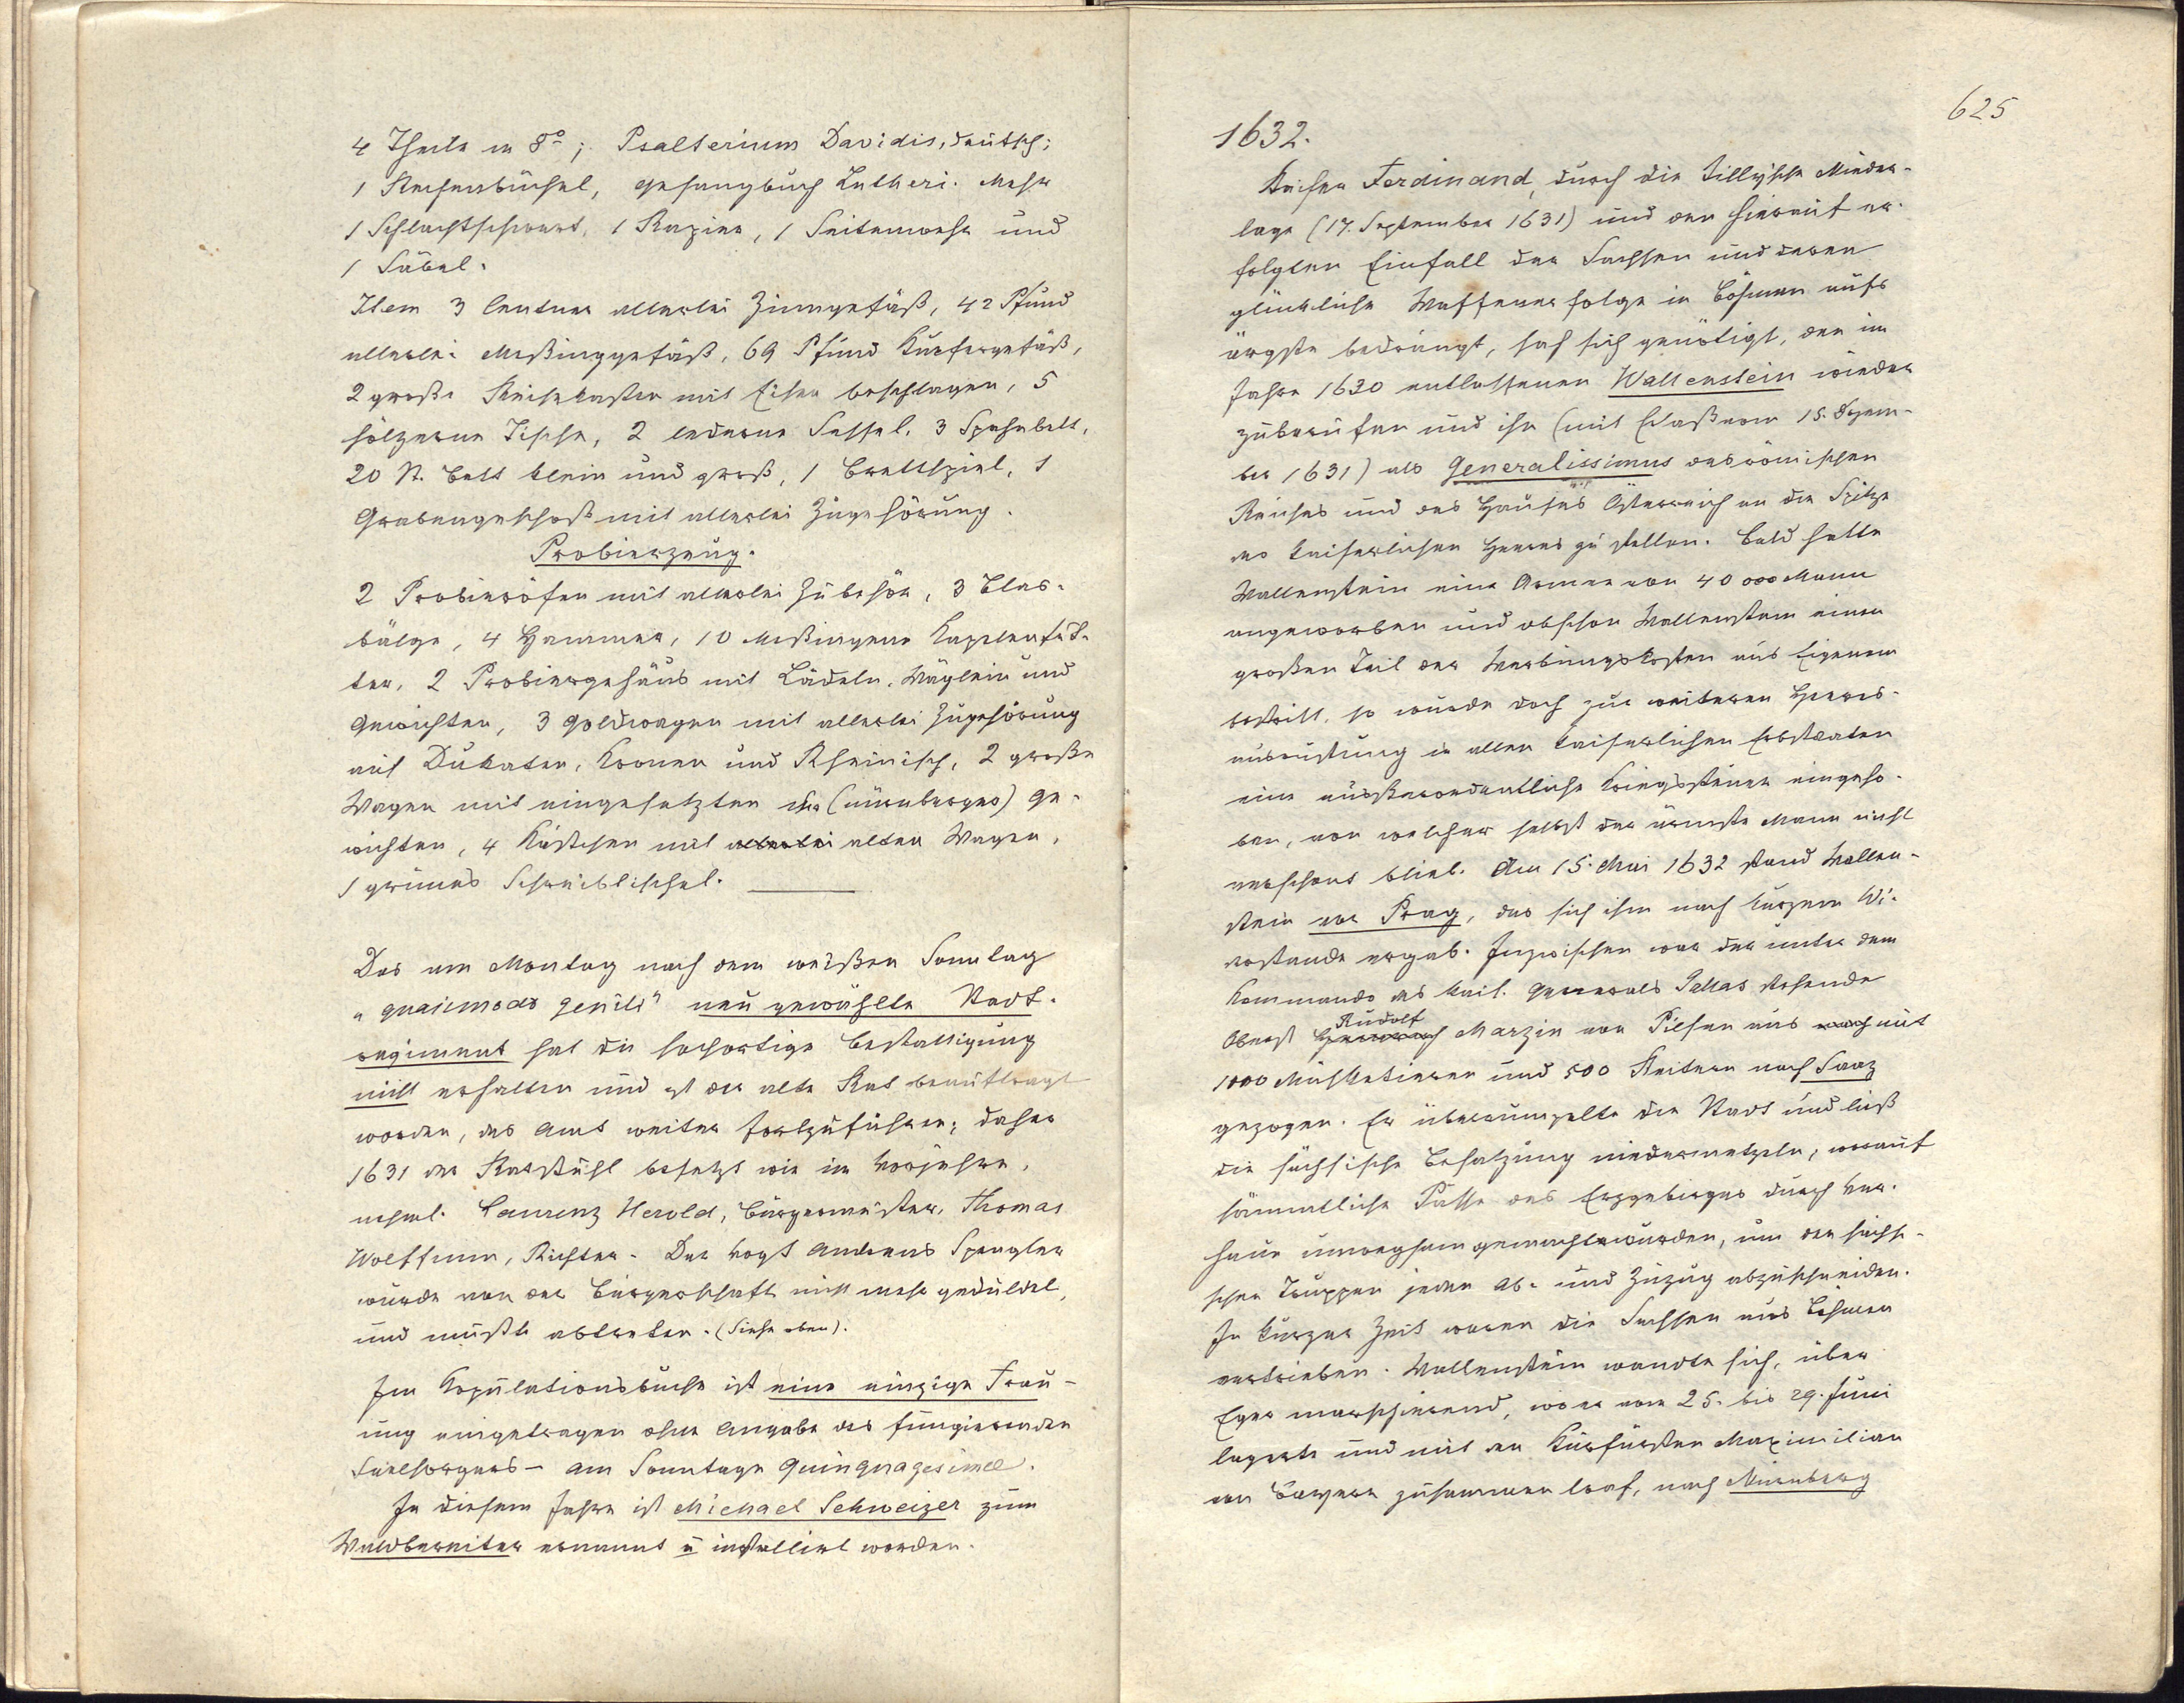 4 Theile in 8°; Psalterium Davidis, deutsch;
1 Rechenbüchel, Gesangbuch Lutheri. Mehr
1 Schlachtschwert, 1 Rapier, 1 Seitenwehr und
1 Säbel.
Item 3 Centner allerlei Zinngefäß, 42 Pfund
allerlei Meßinggefäß, 69 Pfund Kupfergefäß,
2 große Reisekasten mit Eisen beschlagen, 5
hölzerne Tische, 2 lederne Sessel, 3 Spahnbett,
20 St. Bett klein und groß, 1 Brettspiel, 1
Grabengeschoß mit allerlei Zugehörung.
Probierzeug.
2 Probieröfen mit allerlei Zubehör, 3 Blas-
bälge, 4 Hammer, 10 Meßingene Kapelenfut-
ter, 2 Probiergehäus mit Lädeln, Wäglein und
Gewichten, 3 Goldwagen mit allerlei Zugehörung
auf Dukaten, Kronen und Rheinisch, 2 große
Wagen mit eingesetzten (nürnberger) Ge-
wichten, 4 Kästchen mit allerlei alten Wagen,
1 grünes Schreibtischel.
Das am Montag nach dem weißen Sonntag
„quasimodo geniti" neu gewählte Stadt-
regiment hat die sofortige Bestattigung
nicht erhalten und ist der alte Rat beauftragt
worden, das Amt weiter fortzuführen; daher
1631 der Ratstuhl besetzt wie im Vorjahre,
nehml. Laurenz Herold, Bürgermeister, Thomas
Wolffrum, Richter. Der Vogt Andreas Spengler
wurde von der Bürgerschaft nicht mehr geduldet,
und mußte abtreten. (Siehe oben).
Im Kopulationsbuche ist eine einzige Trau-
ung eingetragen ohne Angabe des fungierenden
Seelsorgers – am Sonntage Quinquagesimae.
In diesem Jahre ist Michael Schweizer zum
Waldbereiter ernannt u installiert worden.
625
1632.
Kaiser Ferdinand, durch die Tillysche Nieder-
lage (17. September 1631) und den hierauf er-
folgten Einfall der Sachsen und deren
glückliche Waffenerfolge in Böhmen aufs
ärgste bedrängt, sah sich genötigt, den im
Jahre 1630 entlassenen Wallenstein wieder
zuberufen und ihn (mit Erlaß vom 15. Dezem-
ber 1631) als Generalissimus des römischen
Reiches und des Hauses Österreich an die Spitze
des kaiserlichen Heeres zu stellen. Bald hatte
Wallenstein eine Armee von 40 000 Mann
angeworben und obschon Wallenstein einen
großen Teil der Werbungskosten aus Eigenem
bestritt, so wurde doch zur weiteren Heeres-
ausrüstung in allen kaiserlichen Erbstaaten
eine ausserordentliche Kriegssteuer eingeho-
ben, von welcher selbst der ärmste Mann nicht
verschont blieb. Am 15. Mai 1632 stand Wallen-
stein vor Prag, das sich ihm nach kurzem Wi-
derstande ergab. Inzwischen war der unter dem
Kommando des kais. Generals Gallas stehende
Rudolf
Oberst Marzin von Pilsen aus mit
1000 Musketieren und 500 Reitern nach Saaz
gezogen. Er überrumpelte die Stadt und ließ
die sächsische Besatzung niedermetzeln, worauf
sämmtliche Pässe des Erzgebirges durch Ver-
haue unwegsam gemacht wurden, um den sächsi-
schen Truppen jeden Ab- und Zuzug abzuschneiden.
In kurzer Zeit waren die Sachsen aus Böhmen
vertrieben. Wallenstein wandte sich, über
Eger marschierend, wo er vom 25. bis 29. Juni
lagerte und mit den Kurfürsten Maximilian
von Bayern zusammen traf, nach Nürnberg